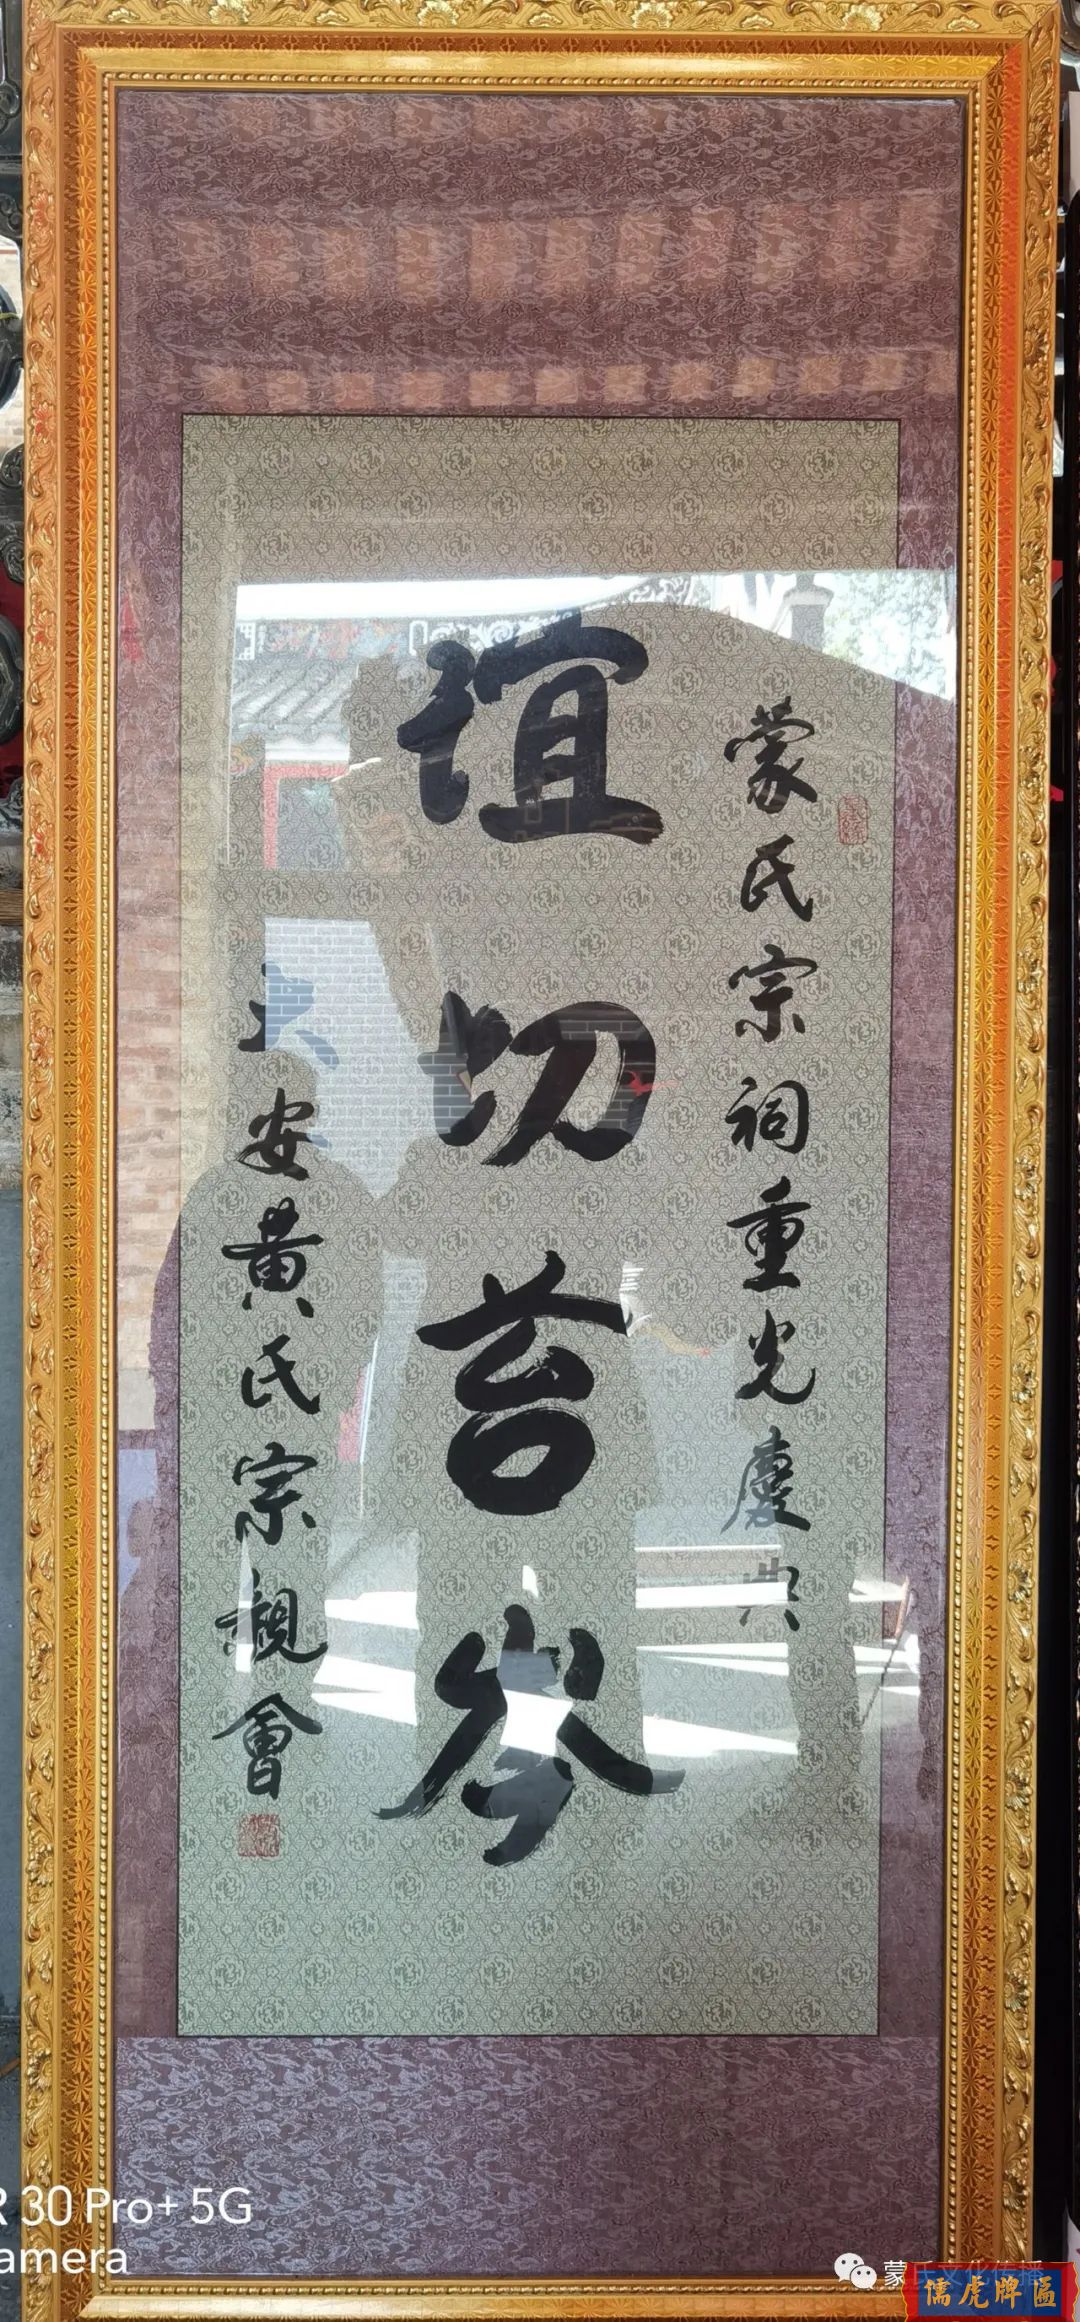 蒙氏宗祠重光慶典
谊切苔岑
安黄氏宗親會
R 30 Pro+ 5G
amera
蒙氏文化传播
儒虎牌匾